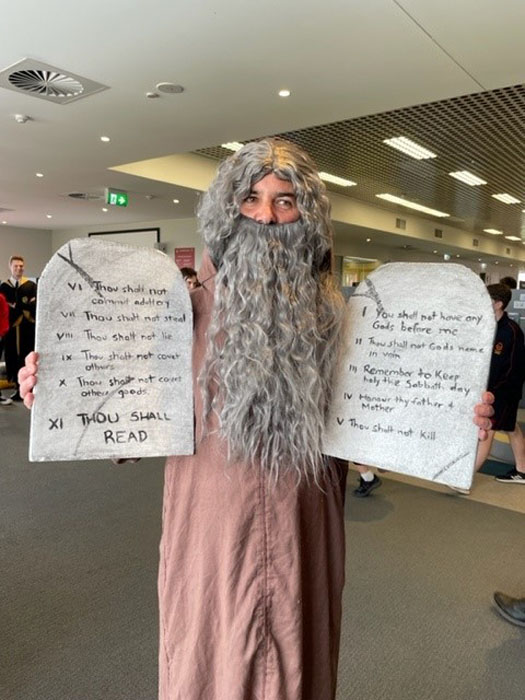 VI Thou shalt not
commit adultery
VII Thou shalt not steal
VIII Thou shalt not lie
IX Thou shalt not covet
others
X Thou shalt not covet
others goods.
XI THOU SHALL
READ
I You shall not have any
Gods before me
II Thou shall not Gods name
in vain
III Remember to Keep
holy the Sabbath day
IV Honour thy father &
Mother
V Thou shalt not Kill